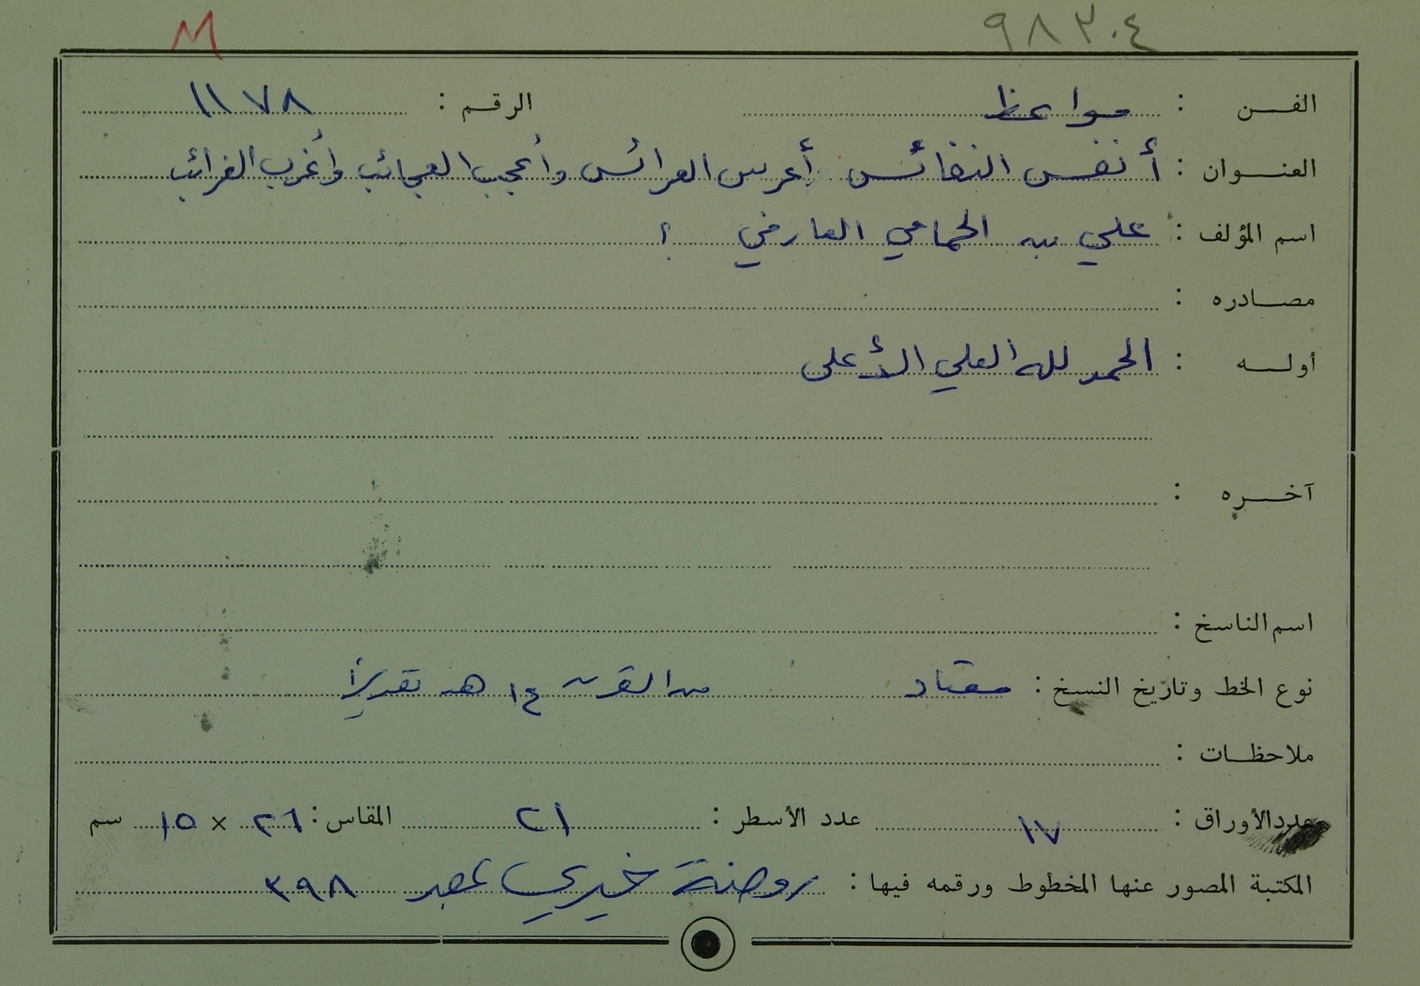 M ٩٨٣٠٤
الفن : مواعظ الرقم : ١١٧٨
العنوان : أنفس النفائس أعرس العرائس وأعجب العجائب وأغرب الغرائب
اسم المؤلف : علي بن الحمامي العارفي ؟
مصادره :
أوله : الحمد لله العلي الأعلى
آخره :
اسم الناسخ :
نوع الخط وتاريخ النسخ : معتاد من القرن ١٤ هـ تقديرًا
ملاحظات :
عدد الأوراق : ١٧ عدد الأسطر : ٢١ المقاس : ٢٦ × ١٥ سم
المكتبة المصور عنها المخطوط ورقمه فيها : روضة خيري بمصر ٣٩٨